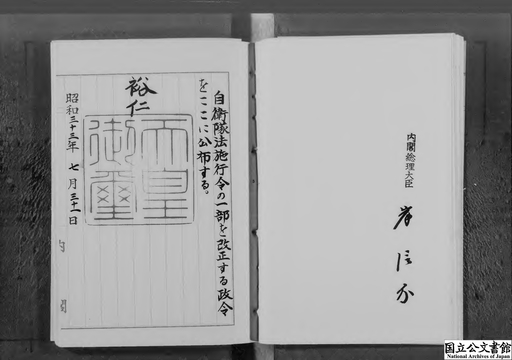 自衛隊法施行令の一部を改正する政令
をここに公布する。
裕仁
天皇
御璽
昭和三十三年 七月 三十一日
内閣総理大臣
岸信介
国立公文書館
National Archives of Japan